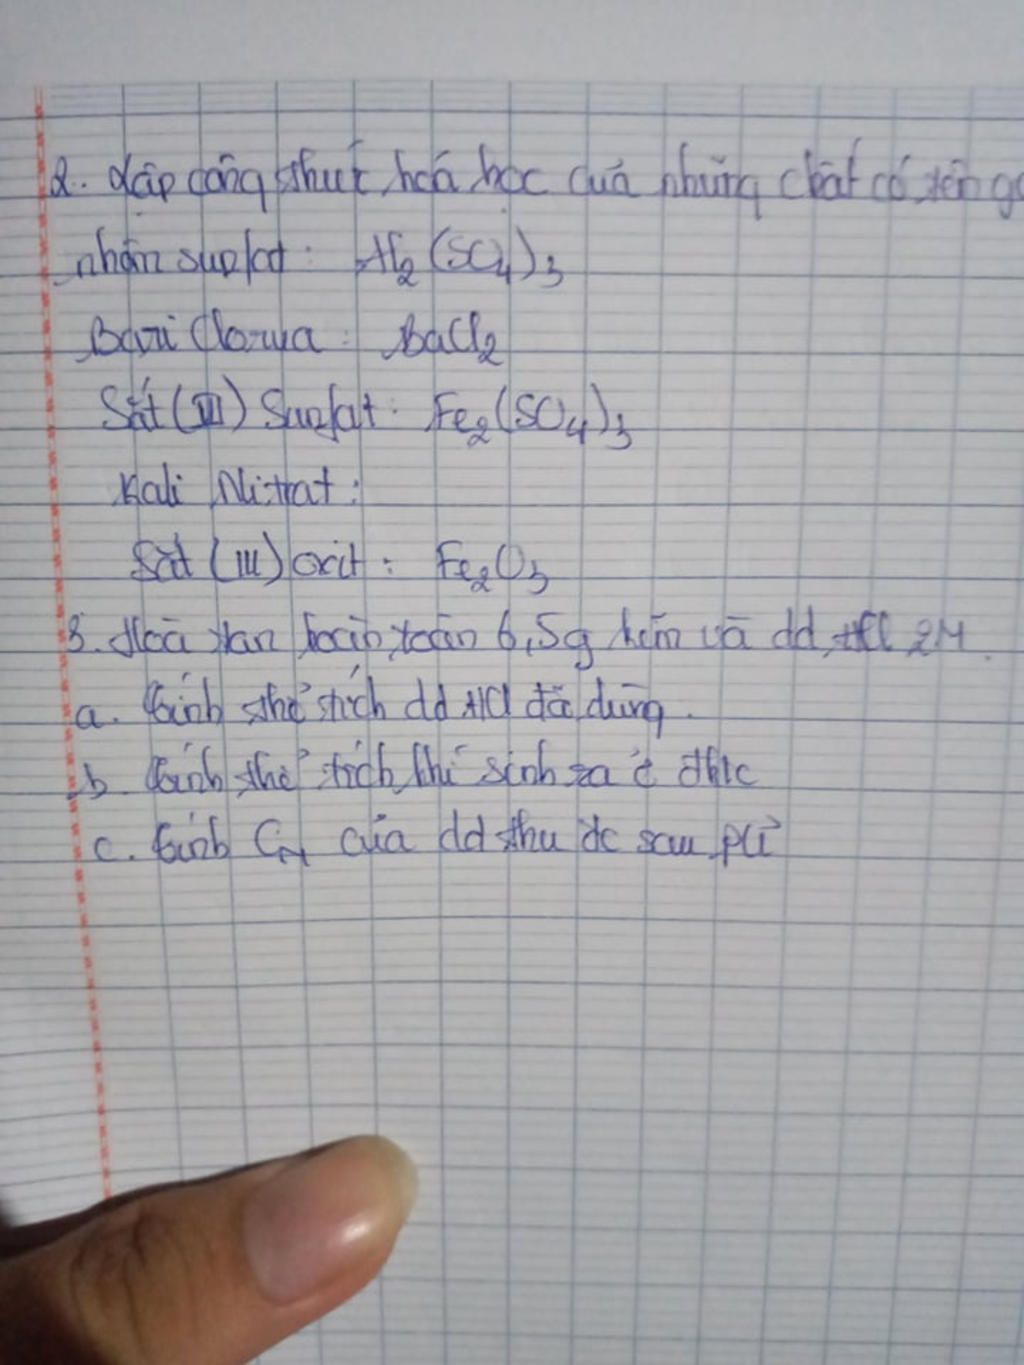 2. Lập công thức hoá học của những chất có tên gọ
nhôm sunfat: Al₂(SO₄)₃
Bari Clorua: BaCl₂
Sắt (III) Sunfat: Fe₂(SO₄)₃
Kali Nitrat:
Sắt (III) oxit: Fe₂O₃
3. Hoà tan hoàn toàn 6,5g kẽm và dd HCl 2M.
a. Tính thể tích dd HCl đã dùng.
b. Tính thể tích khí sinh ra ở đktc
c. Tính CM của dd thu đc sau pứ